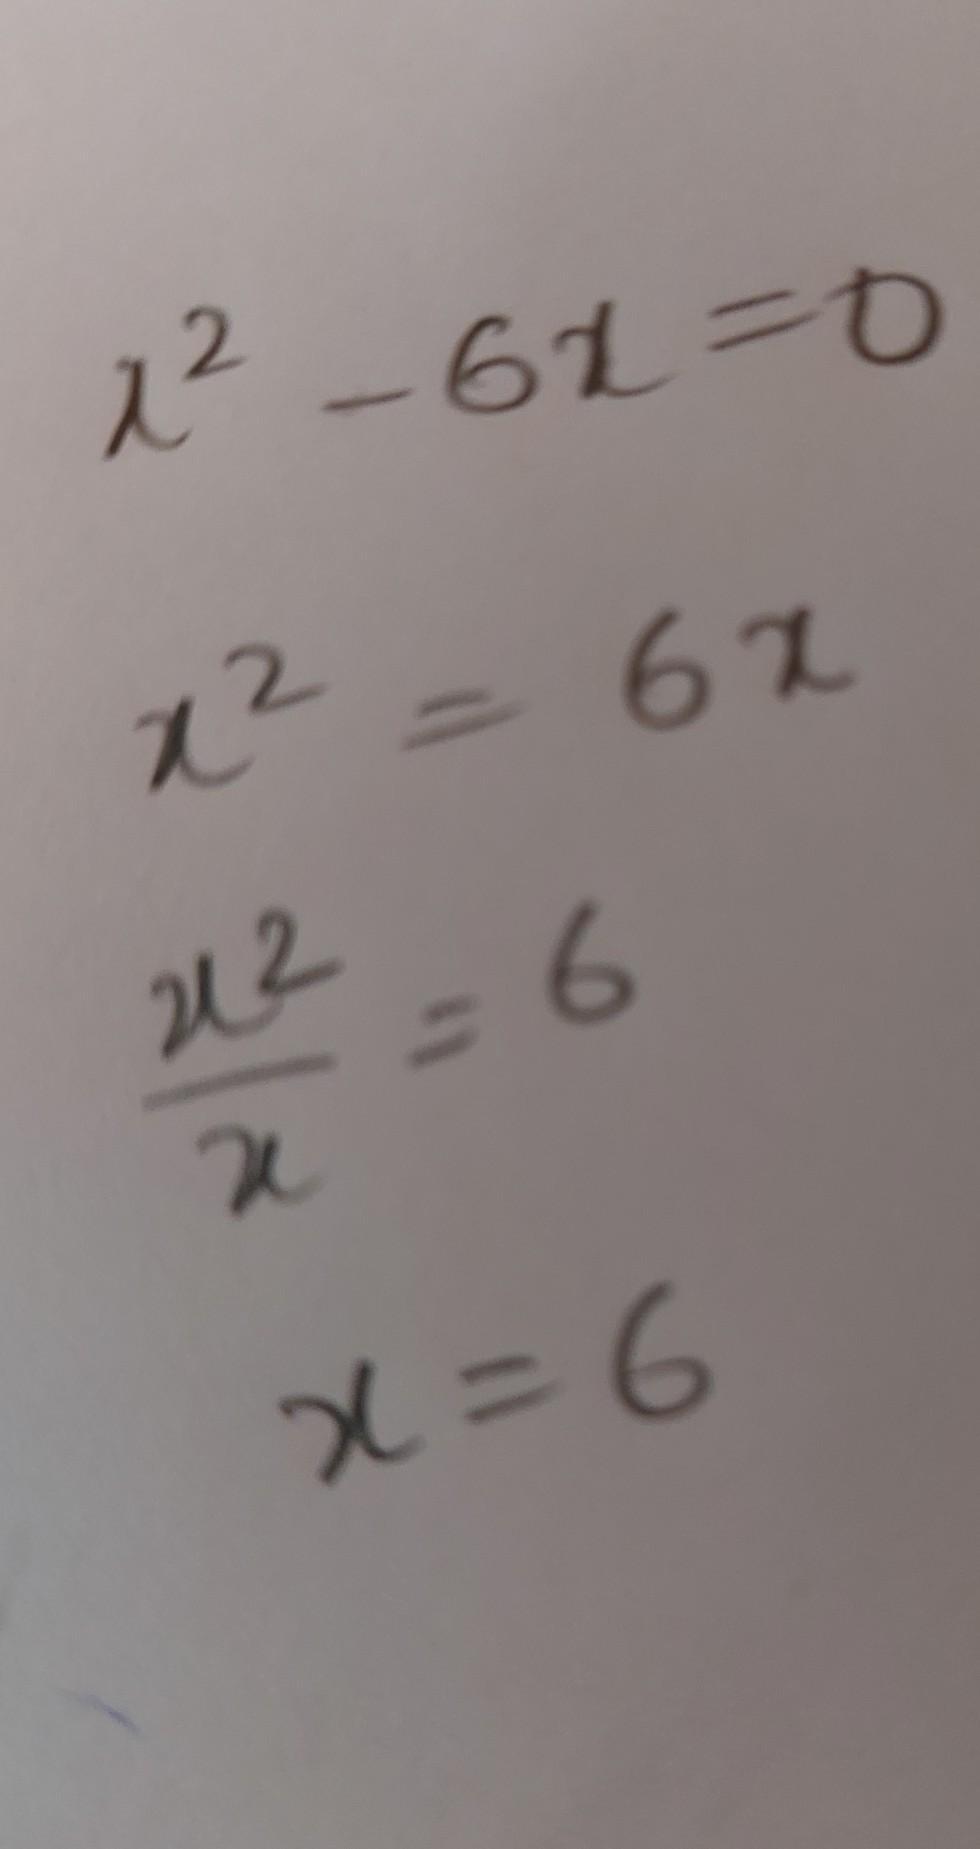 x² - 6x = 0
x² = 6x
x²/x = 6
x = 6